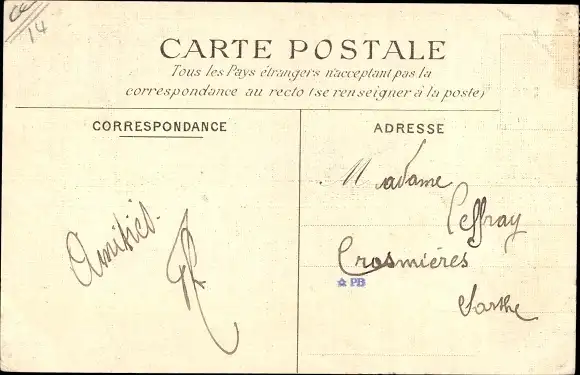 14
CARTE POSTALE
Tous les Pays étrangers n'acceptant pas la
correspondance au recto (se renseigner à la poste)
CORRESPONDANCE
Amitiés.
ADRESSE
Madame
Leffray
Crosmières
PB
Sarthe